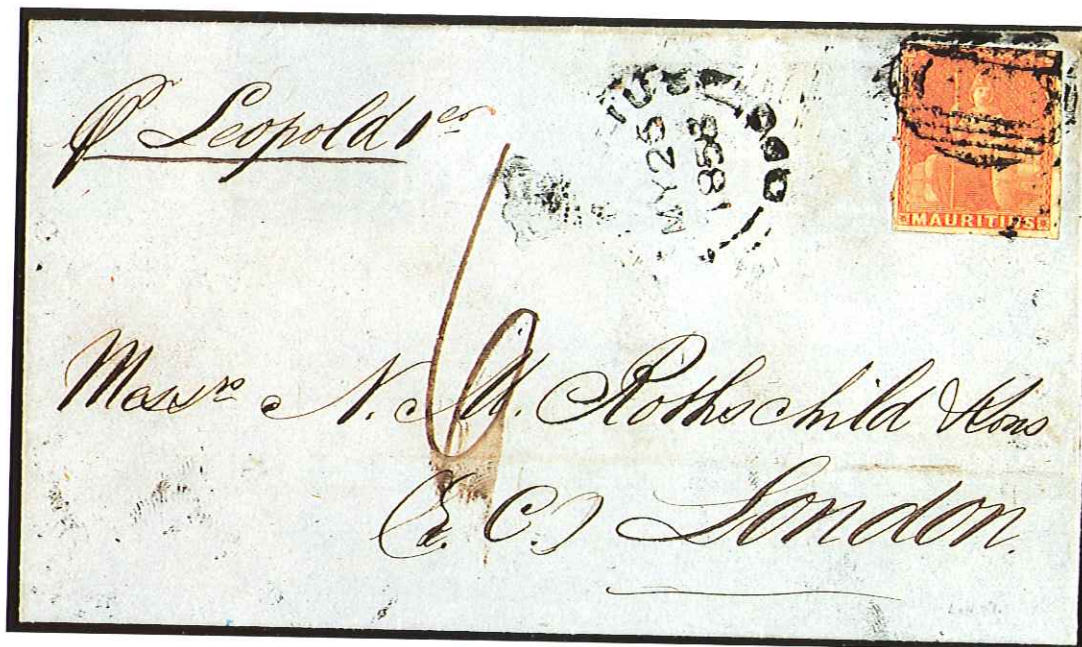 pr Leopold 1er
MY 25
1858
MAURITIUS
6
Messrs N. M. Rothschild & Sons
(E. C.) London.